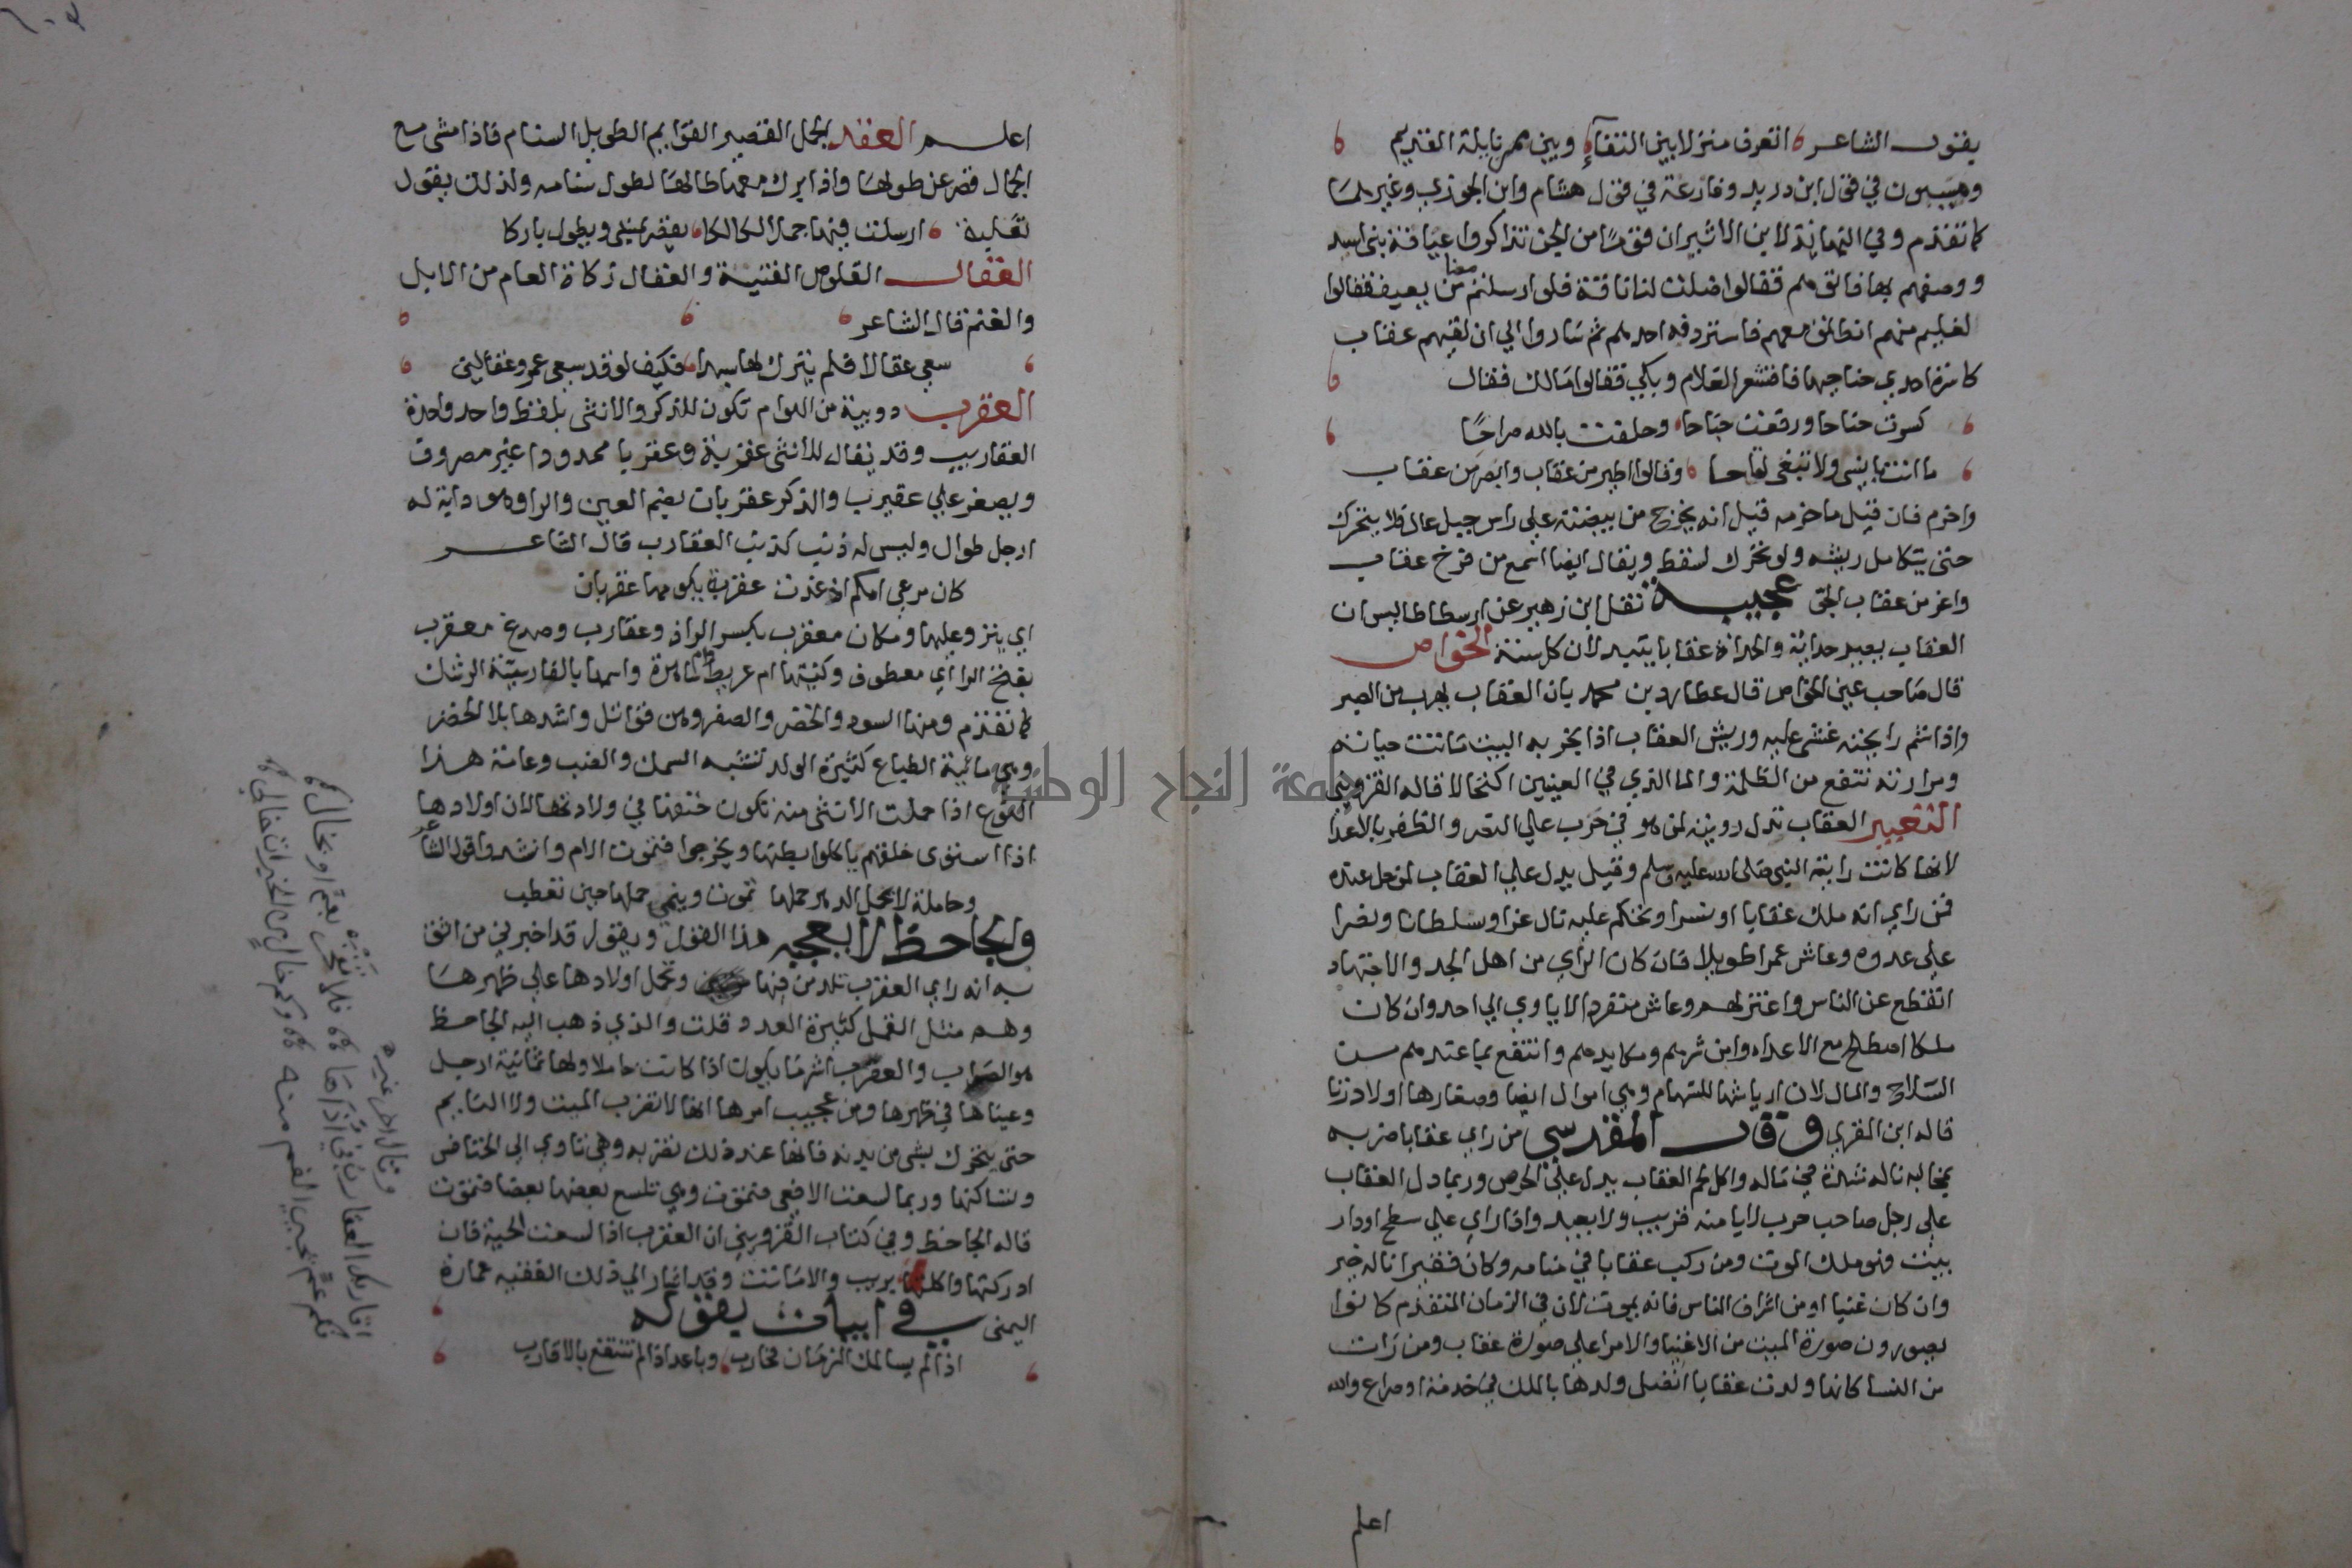 يقول الشاعر اتعرف منزلا بين النقاء وبين ممر نايلة القديم
وهيبيون في قول ابن دريد وفارعة في قول هشام وابن الجوزي وغيرهما
كما تقدم وفي النهاية لابن الاثير ان قوما من الجن تذاكروا عيافة بني اسد
ووصفهم بها فاتوهم فقالوا ضلت لنا ناقة فلو ارسلتم معنا من يعيف فقالوا
لغليم منهم انطلق معهم فاستردفه احدهم ثم ساروا الي ان لقيهم عقاب
كاسرة احدي جناحيها فاقشعر الغلام وبكي فقالوا مالك فقال
كسرت جناحا ورفعت جناحا وحلفت بالله صراحا
ما انت بانسي ولا تبغي لقاحا وقالوا اطير من عقاب وابصر من عقاب
واحزم فان قيل ما حزمه قيل انه يخرج من بيضته علي راس جبل عال فلا يتحرك
حتي يتكامل ريشه ولو تحرك لسقط ويقال ايضا اسمع من فرخ عقاب
واعز من عقاب الجو عجيبة نقل ابن زهير عن ارسطاطاليس ان
العقاب يصير حداية والحداة عقابا يتبدلان كل سنة الخواص
قال صاحب عين الخواص قال عطارد بن محمد بان العقاب يهرب من الصبر
واذا شم رايحته غشي عليه وريش العقاب اذا بخر به البيت ماتت حياته
ومرارته تنفع من الظلمة والما الذي في العينين اكتحالا قاله القزويني
التعبير العقاب تدل رويته لمن هو في حرب علي النصر والظفر بالاعدا
لانها كانت راية النبي صلي الله عليه وسلم وقيل يدل علي العقاب لمن حل عنده
فمن راي انه ملك عقابا او نسرا وتحكم عليه نال عزا وسلطانا ونصرا
علي عدوه وعاش عمرا طويلا فان كان الراي من اهل الجد والاجتهاد
انقطع عن الناس واعتزلهم وعاش منفردا لا ياوي الي احد وان كان
ملكا اصطلح مع الاعداء وامن شرهم ومكايدهم وانتفع بما عندهم من
السلاح والمال لان ارياشها للسهام وهي اموال ايضا وصغارها اولاد زنا
قاله ابن المقري وقال المقدسي من راي عقابا ضربه
بمخالبه ناله شدة في ماله واكل لحم العقاب يدل علي الحرص وربما دل العقاب
علي رجل صاحب حرب لا يامنه قريب ولا بعيد واذا راي علي سطح او دار
بيت فهو ملك الموت ومن ركب عقابا في منامه وكان فقيرا ناله خير
وان كان غنيا او من اشراف الناس فانه يموت لان في الزمان المتقدم كانوا
يصورون صورة الميت من الاغنيا والامرا علي صورة عقاب ومن رات
من النسا كانها ولدت عقابا اتصل ولدها بالملك في خدمة او صراع والله
اعلم
اعلم العقد الجمل القصير القوايم الطويل السنام فاذا مشي مع
الجمال قصر عن طولها واذا برك معها طالها لطول سنامه ولذلك يقول
ثعلبة ارسلت فيها جملا لكالكا يقصر يمشي ويطول باركا
العقال القلوص الفتية والعقال زكاة العام من الابل
والغنم قال الشاعر
سعي عقالا فلم يترك لها سبدا فكيف لو قد سعي عمرو عقالين
العقرب دويبة من الهوام تكون للذكر والانثي بلفظ واحد واحدة
العقارب وقد يقال للانثي عقربة وعقربا ممدودا غير مصروف
ويصغر علي عقيرب والذكر عقربان بضم العين والرا وهو دابة له
ارجل طوال وليس له ذنب كذنب العقارب قال الشاعر
كان مرعي امكم اذ غدت عقربة يكومها عقربان
اي ينزو عليها ومكان معقرب بكسر الرا ذو عقارب وصدغ معقرب
بفتح الرا اي معطوف وكنيتها ام عريط وام ساهرة واسمها بالفارسية الرشك
كما تقدم ومنها السود والخضر والصفر وهن قواتل واشدها بلا الخضر
وهي مائية الطباع كثيرة الولد تشبه السمك والضب وعامة هذا
النوع اذا حملت الانثي منه تكون حتفها في ولادتها لان اولادها
اذا استوي خلقهم ياكلوا بطنها ويخرجوا فتموت الام وانشدوا قول الشاعر
وحاملة لا يحمل الدهر حملها تموت وينمي حملها حين تعطب
والجاحظ لا يعجبه هذا القول ويقول قد اخبرني من اثق
به انه راي العقرب تلد من فيها وتحمل اولادها علي ظهرها
وهم مثل القمل كثيرة العدد قلت والذي ذهب اليه الجاحظ
هو الصواب والعقرب اشر ما يكون اذا كانت حاملا ولها ثمانية ارجل
وعيناها في ظهرها ومن عجيب امرها انها لا تضرب الميت ولا النايم
حتي يتحرك بشي من بدنه فانها عند ذلك تضربه وهي تاوي الي الخنافس
وتسالمها وربما لسعت الافعي فتموت وهي تلسع بعضها بعضا فتموت
قاله الجاحظ وفي كتاب القزويني ان العقرب اذا لسعت الحية فان
ادركتها واكلتها بريت والا ماتت وقد اشار الي ذلك الفقيه عمارة
اليمني في ابيات بقوله
اذا لم يسالمك الزمان فحارب وباعد اذا لم تنتفع بالاقارب
وقال اخر غيره
اقاربك العقارب في اذاها فلا تفخر بعم او بخال
فكم عم يجيب الغم منه وكم خال من الخيرات خالي
جامعة النجاح الوطنية